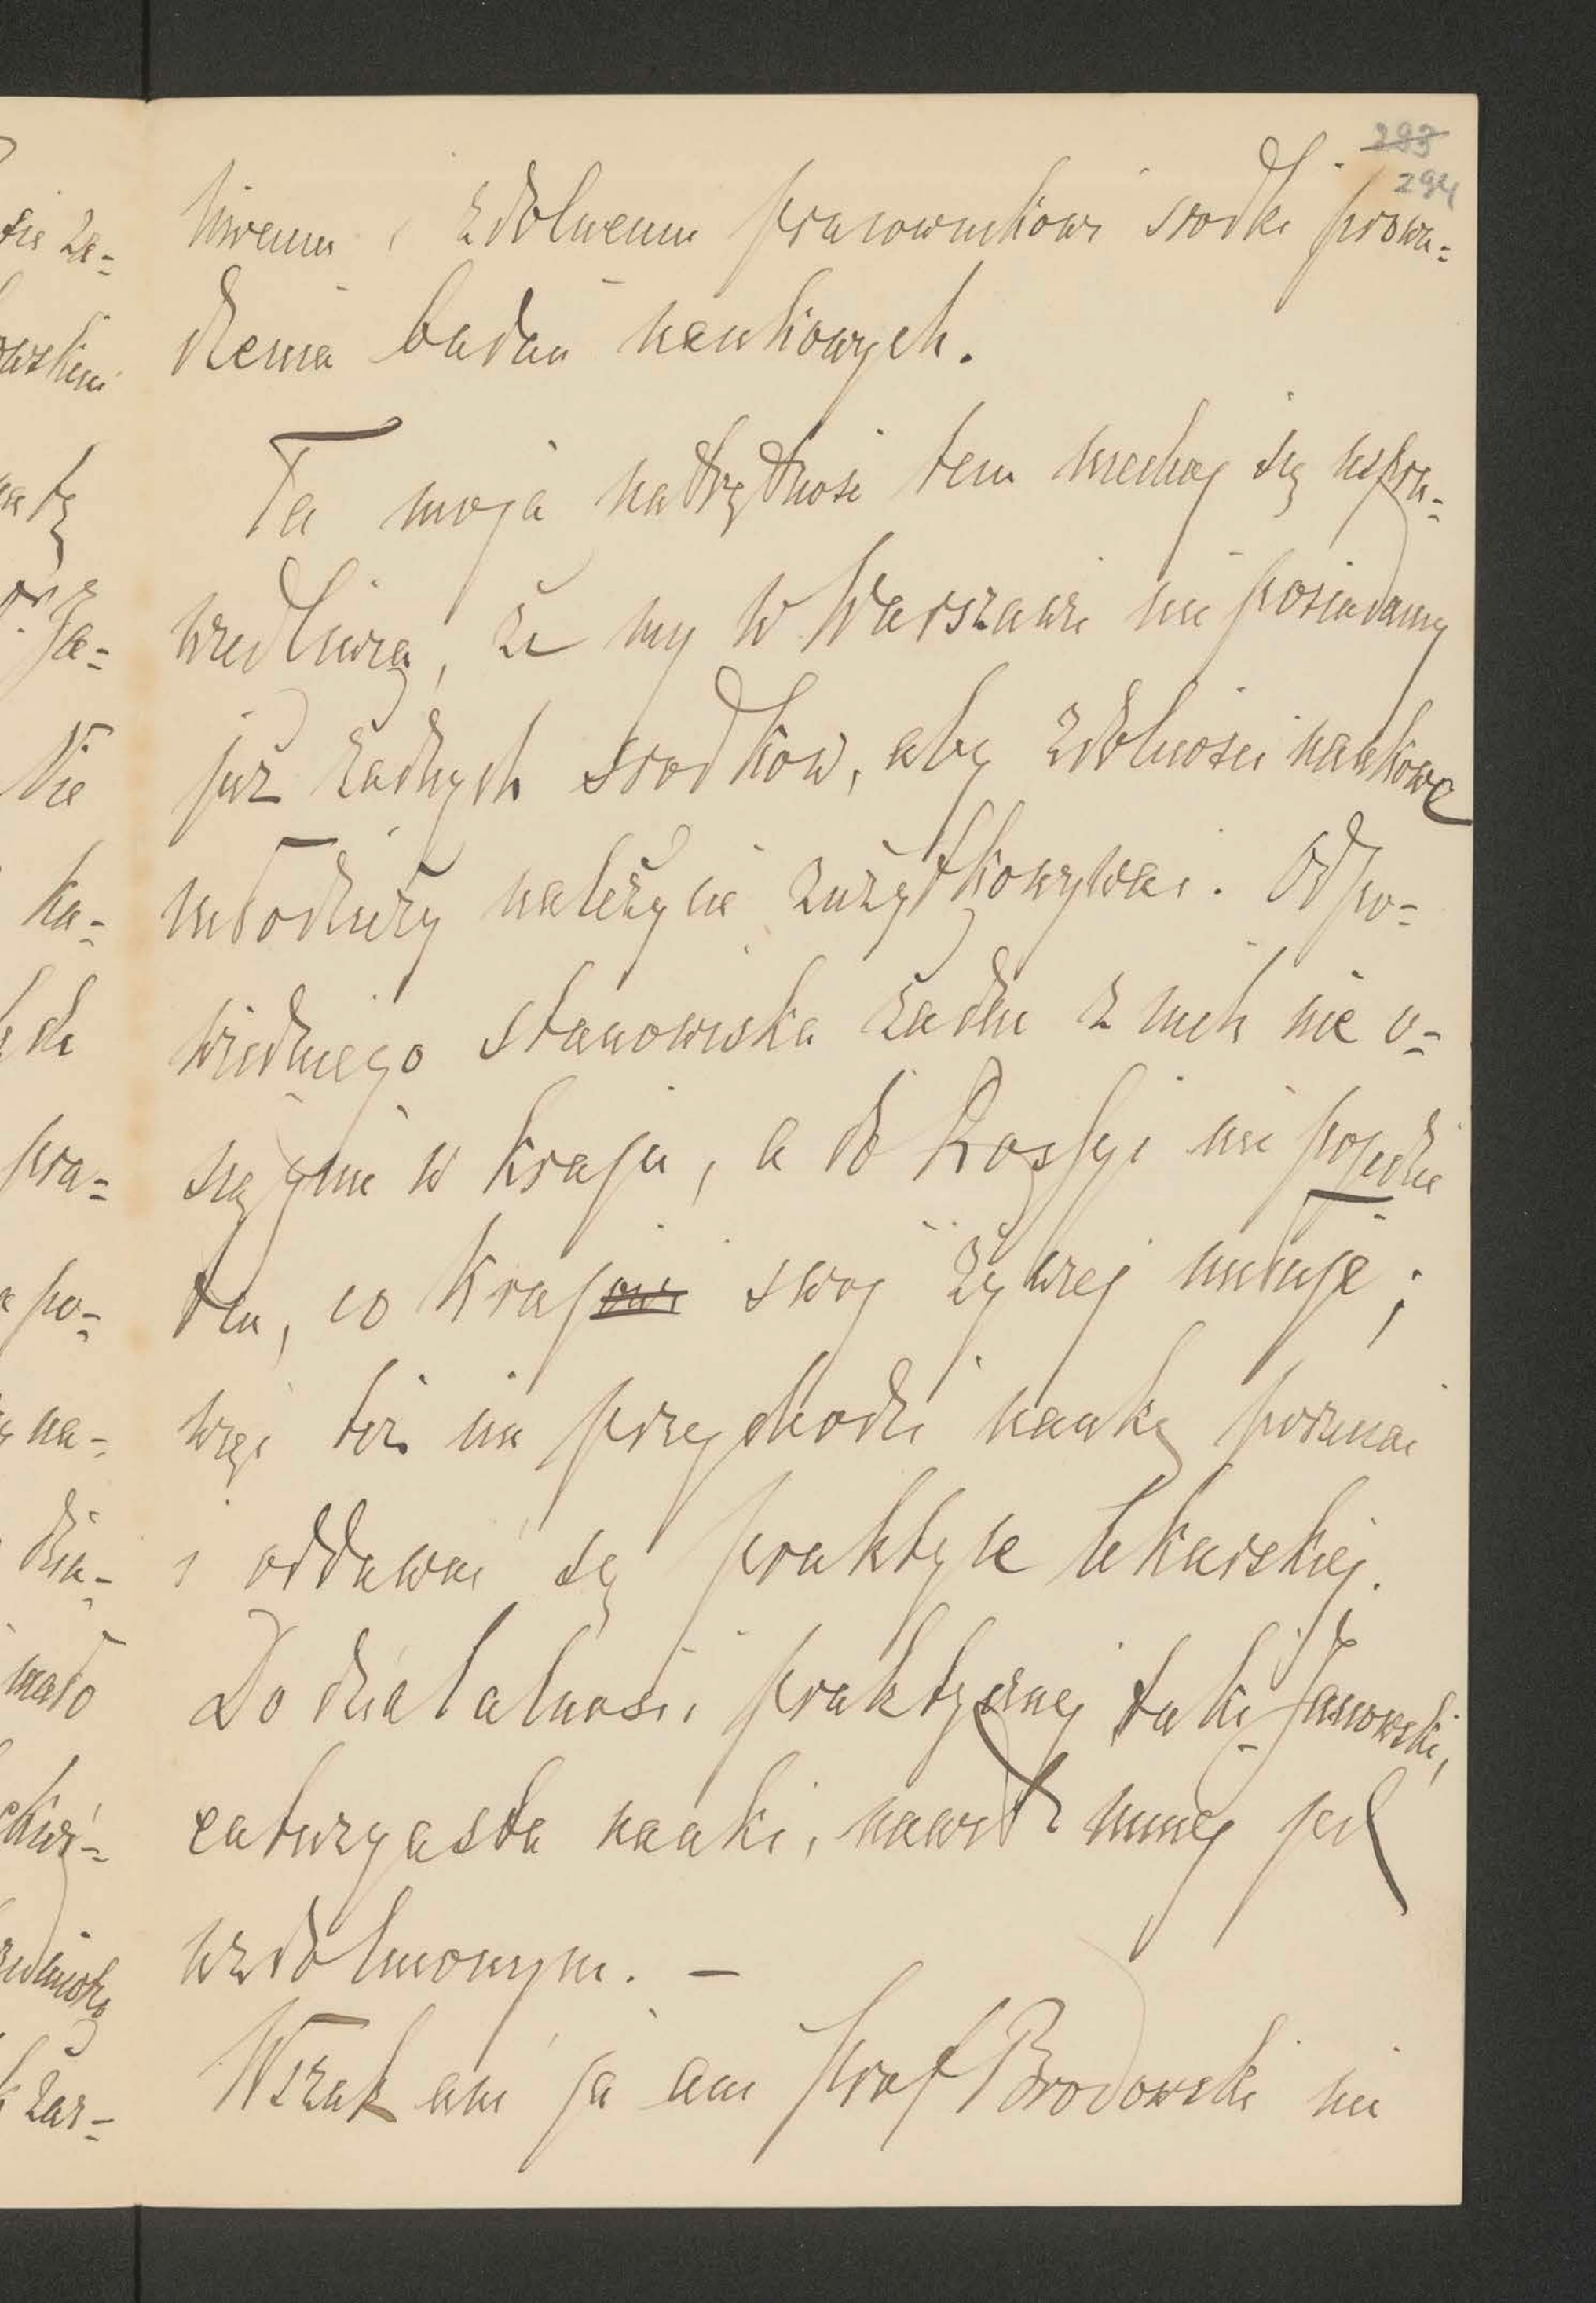 293
294
liwemu i zdolnemu pracownikowi środki prowa=
dzenia badań naukowych.
Ta moja natrętność tem niechaj się uspra=
wiedliwia, że my w Warszawie nie posiadamy
już żadnych środków, aby zdolności naukowe
młodzieży należycie zużytkowywać. Odpo=
wiedniego stanowiska żaden z nich nie o=
siągnie w kraju, a do Rossyi nie pojedzie
ten, co kraj swój żywiej miłuje;
więc też im przychodzi naukę porzucać
i oddawać się praktyce lekarskiej.
Do działalności praktycznej taki Janowski,
entuzyasta nauki, nawet mniej jest
uzdolnionym. —
Wszak ani ja ani prof Brodowski nie